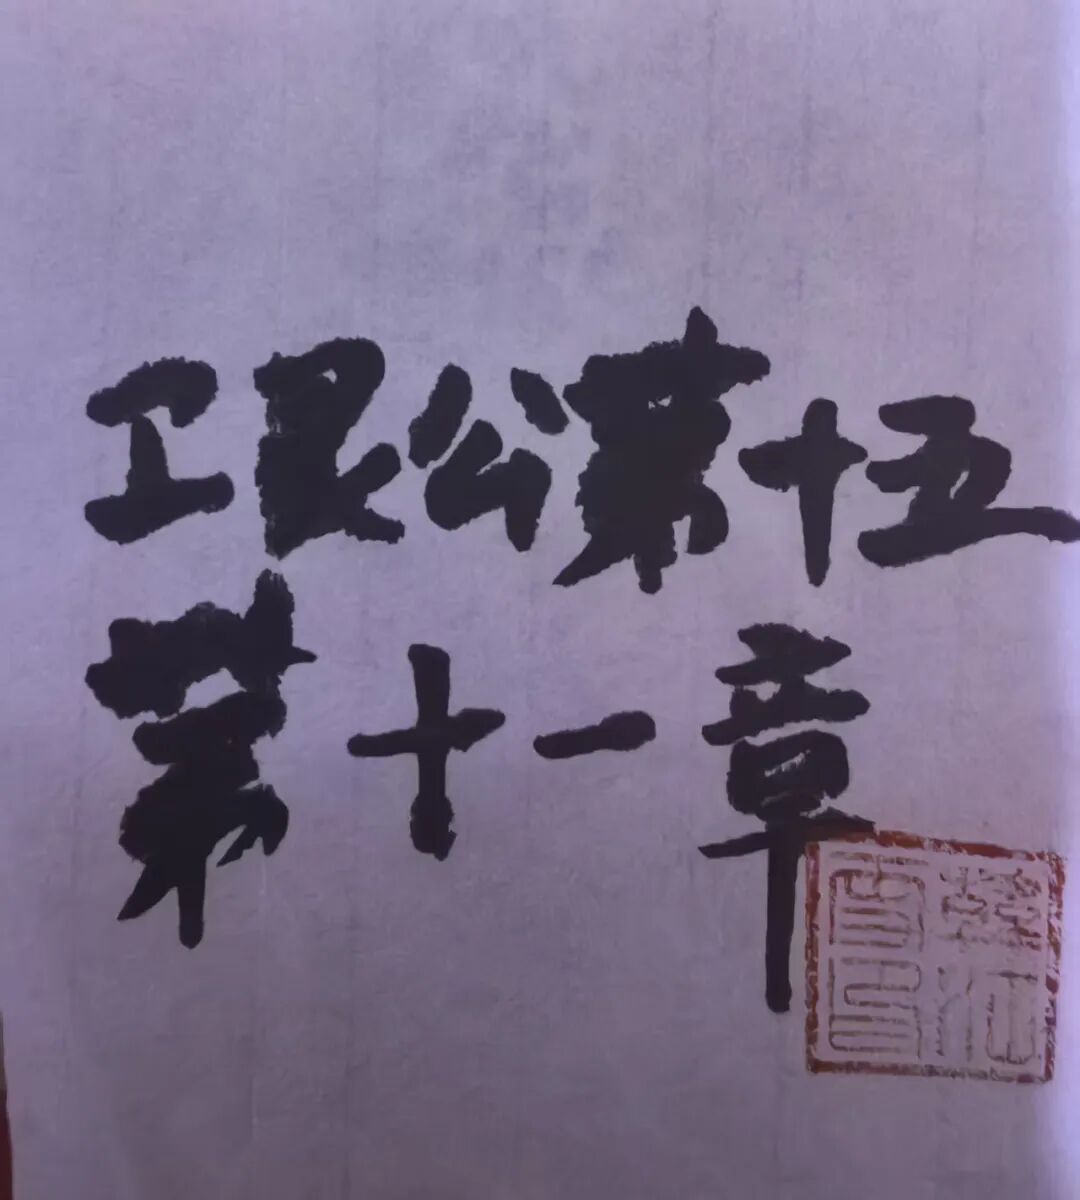 工艮公第十五
第十一章